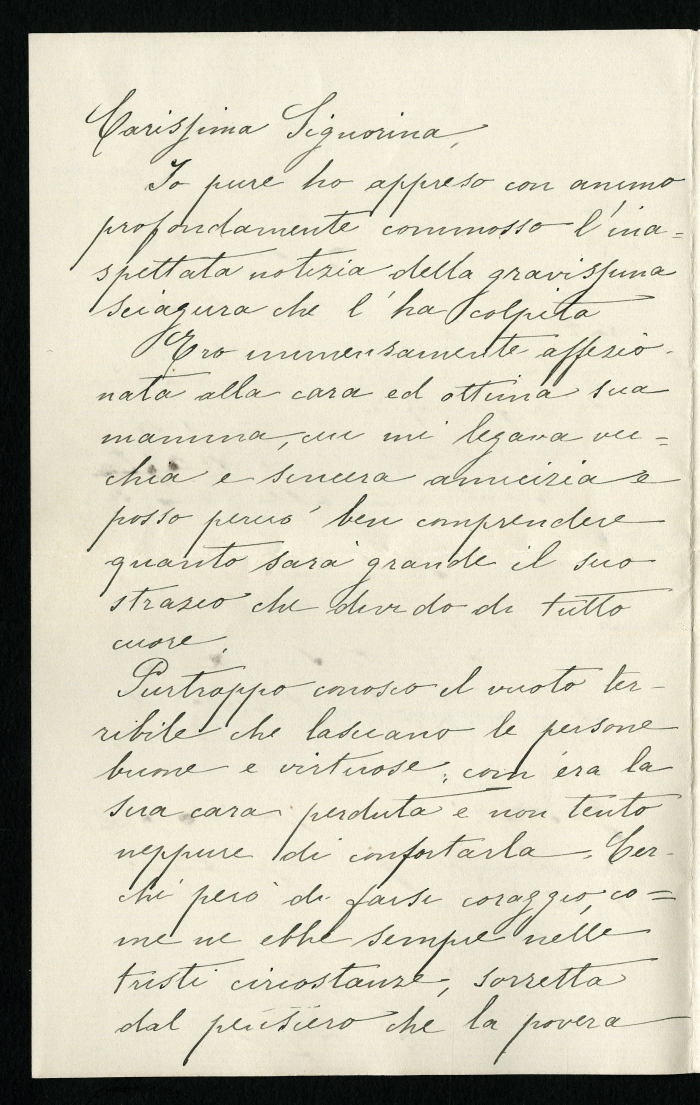 Carissima Signorina,
Io pure ho appreso con animo
profondamente commosso l'ina=
spettata notizia della gravissima
sciagura che l'ha colpita
Ero immensamente affezio-
nata alla cara ed ottima sua
mamma, cui mi legava vec=
chia e sincera amicizia e
posso perciò ben comprendere
quanto sarà grande il suo
strazio che divido di tutto
cuore.
Purtroppo conosco il vuoto ter-
ribile che lasciano le persone
buone e virtuose, com'era la
sua cara perduta e non tento
neppure di confortarla. Cer-
chi però di farsi coraggio, co=
me ne ebbe sempre nelle
tristi circostanze, sorretta
dal pensiero che la povera